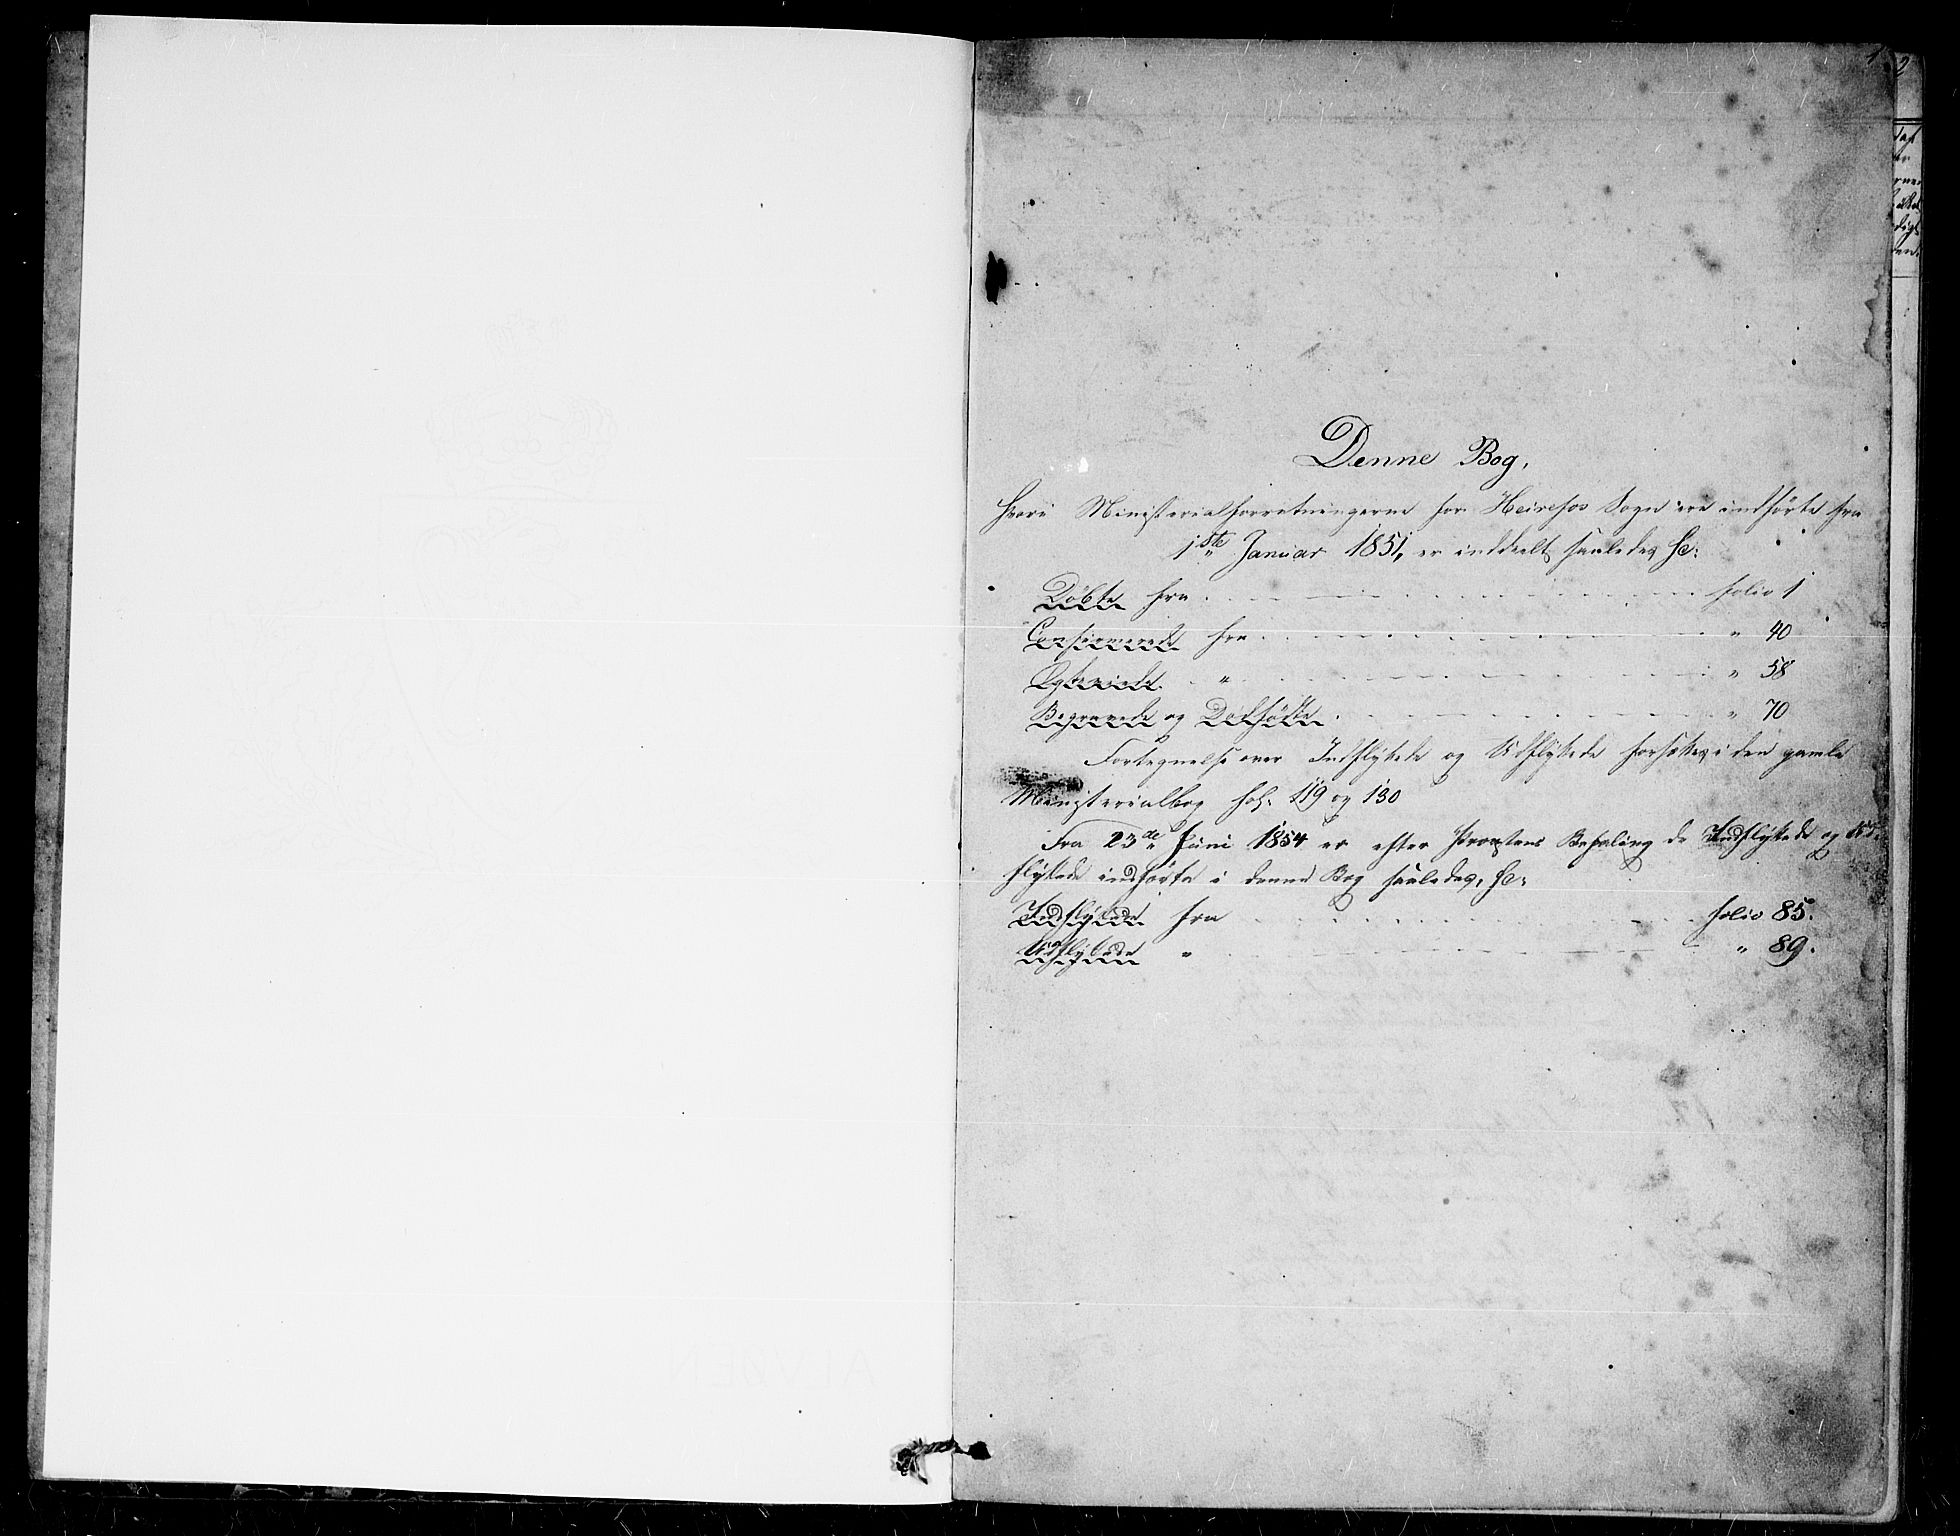 1
2
Denne Bog,
hvori Ministerialforretningerne for Heirefos Sogn ere indførte fra
1ste Januar 1851, er inddeelt saaledes sc:
Døbte fra folio 1
Confirmerede fra " 40
Egteviede " " 58
Begravede og Dødfødte " 70
Fortegnelse over Indflyttede og Udflyttede forsættes i den gamle
Ministerialbog fol: 119 og 130
Fra 23de Juni 1854 er efter Provstens Befaling de Indflyttede og Ud-
flyttede indførte i denne Bog saaledes, sc:
Indflyttede fra folio 85.
Udflyttede " " 89.
ALVØEN